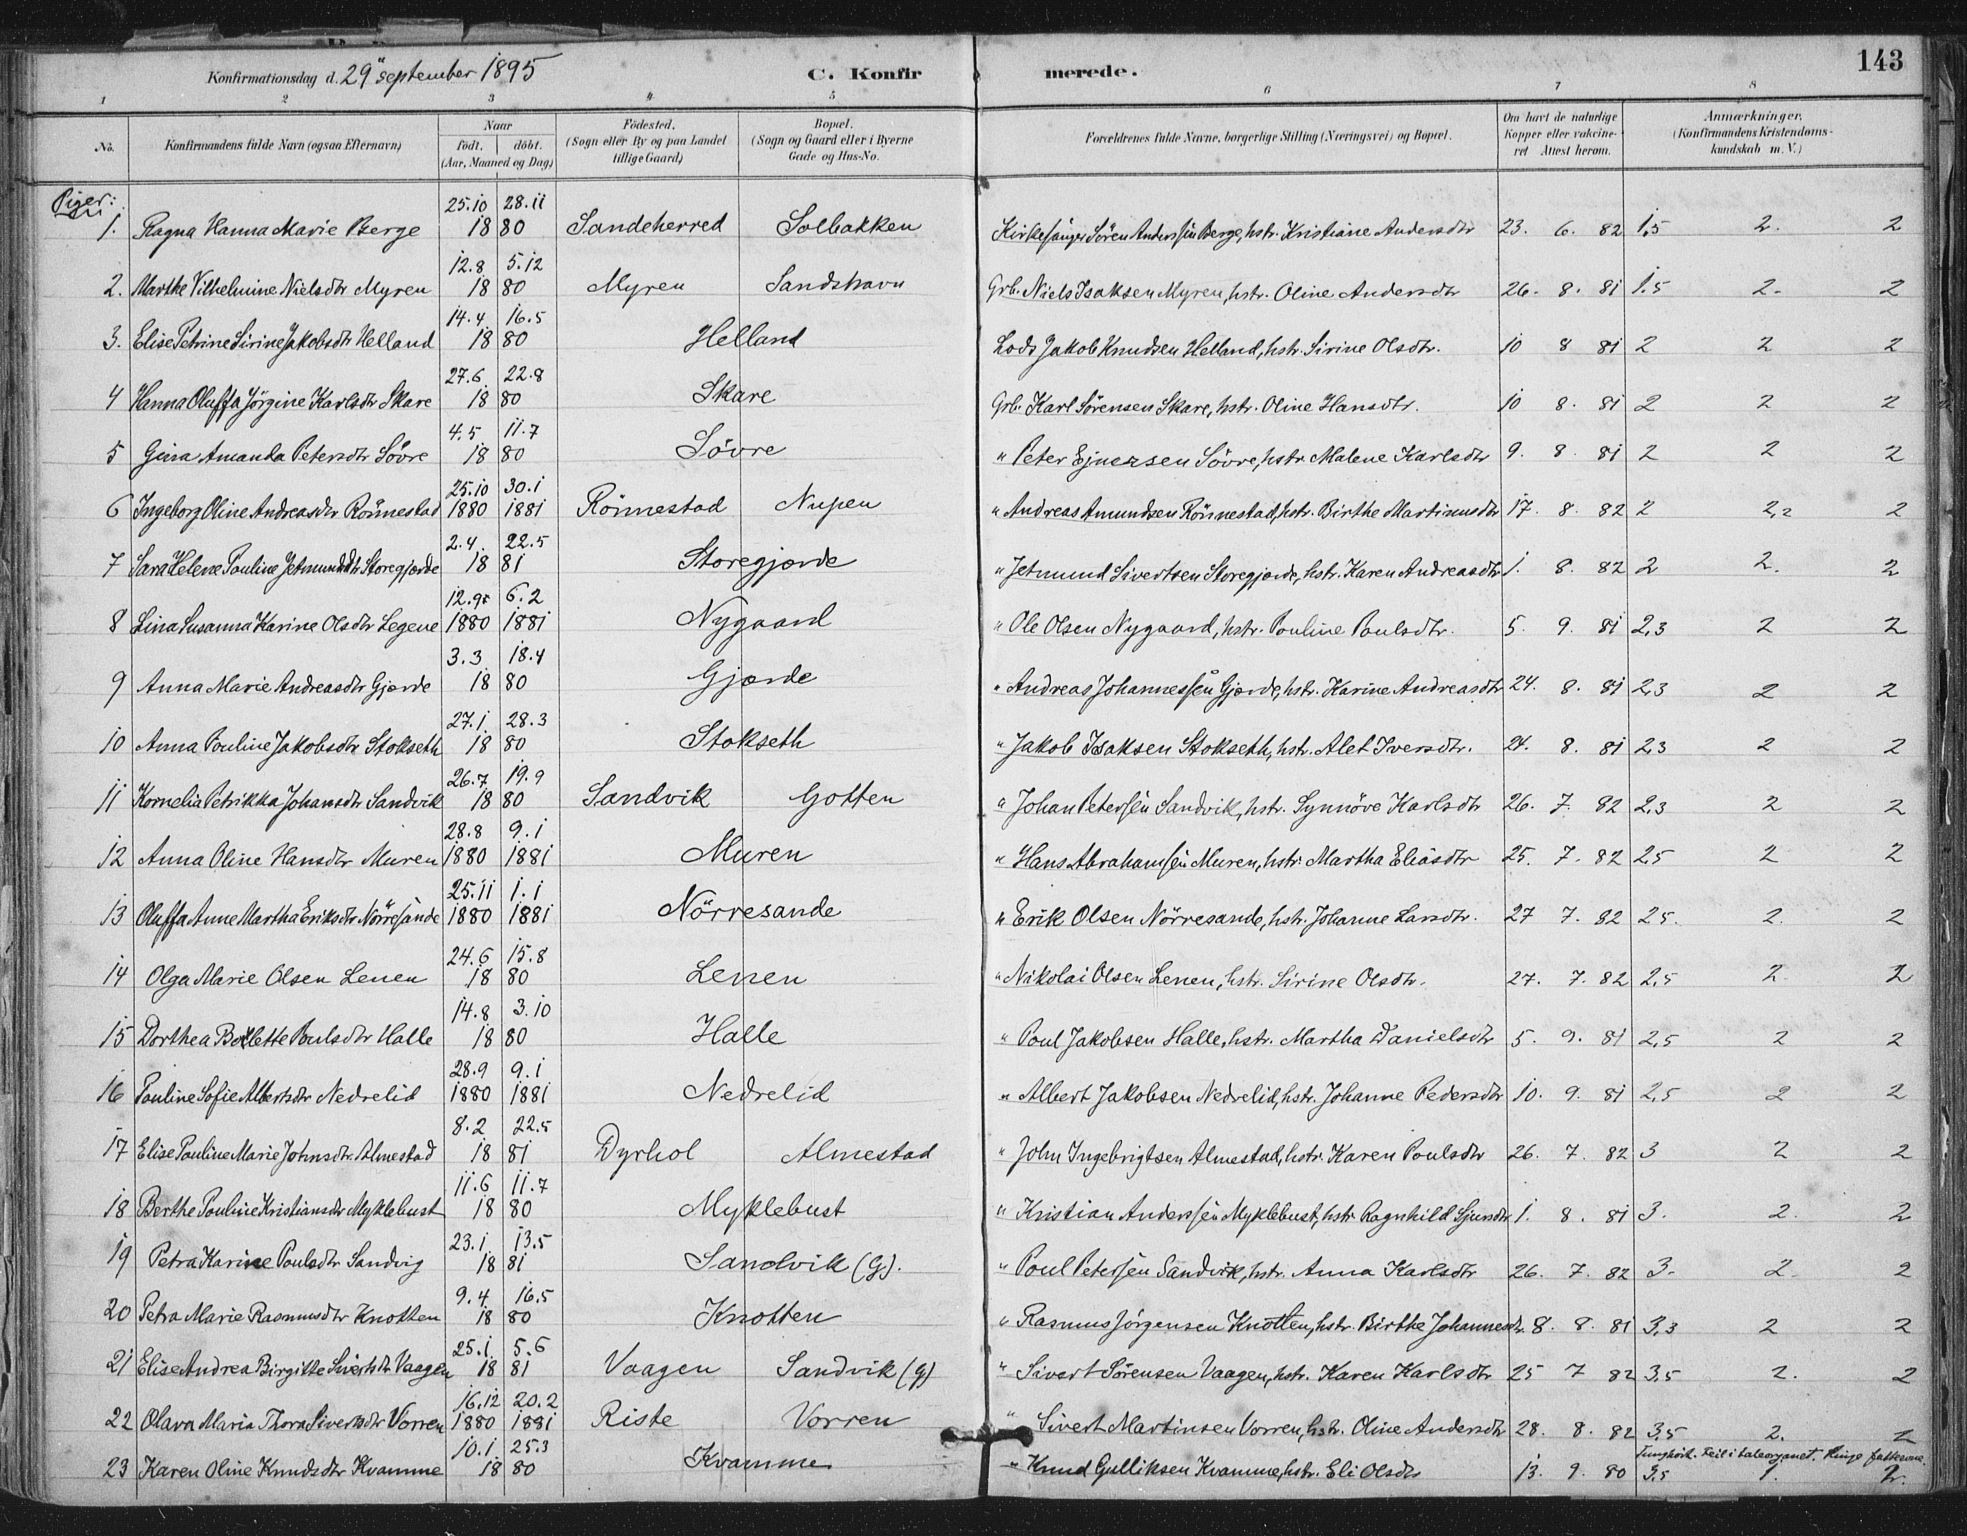 143
Konfirmationsdag d. 29de september 1895 C. Konfirmerede.
1 2 3 4 5 6 7 8
No. Konfirmandens fulde Navn (ogsaa Efternavn) Naar født. døbt. (Aar, Maaned og Dag) Fødested. (Sogn eller By og paa Landet tillige Gaard) Bopæl. (Sogn og Gaard eller i Byerne Gade og Hus-No. Forældrenes fulde Navne, borgerlige Stilling (Næringsvei) og Bopæl. Om havt de naturlige Kopper eller vakcineret. Attest herom. Anmærkninger. (Konfirmandens Kristendomskundskab m. V.)
Piger:
1. Ragna Hanna Marie Berge 25.10 28.11 1880 Sandeherred Solbakken Kirkesanger Sören Anderssen Berge, hstr. Kristiane Andersdtr 23. 6. 82 1,5 2. 2
2. Marthe Vilhelmine Nielsdtr Myren 12.8 5.12 1880 Myren Sandshavn Grb. Niels Isaksen Myren, hstr. Oline Andersdtr 26. 8. 81 1.5 2. 2
3. Elise Petrine Sirine Jakobsdtr Helland 14.4 16.5 1880 Helland Lods Jakob Knudsen Helland, hstr. Sirine Olsdtr. 10 8 81 2 2 2
4 Hanna Oluffa Jörgine Karlsdtr Skare 27.6 22.8 1880 Skare Grb. Karl Sörensen Skare, hstr. Oline Hansdtr. 10 8. 81 2 2 2
5 Gina Amanda Petersdtr Sövre 4.5 11.7 1880 Sövre " Peter Ejnersen Sövre, hstr. Malene Karlsdtr 9. 8. 81 2 2 2
6 Ingeborg Oline Andreasdtr Rönnestad 25.10 30.1 1880 1881 Rönnestad Nupen " Andreas Amundsen Rönnestad, hstr. Birthe Martinusdtr 17. 8. 82 2 2,2 2
7 Sara Helene Pauline Jetmundsdtr Storegjærde 2.4. 22.5 1881 Storegjærde " Jetmund Sivertsen Storegjærde, hstr. Karen Andreasdtr 1. 8. 82 2 2. 2
8 Lina Susanna Karine Olsdtr Legene 12.9 6.2 1880 1881 Nygaard " Ole Olsen Nygaard, hstr. Pauline Poulsdtr. 5. 9. 81 2,3 2 2
9 Anna Marie Andreasdtr Gjærde 3.3 18.4 1880 Gjærde " Andreas Johannessen Gjærde, hstr. Karine Andreasdtr 24. 8. 81 2,3 2 2
10 Anna Pouline Jakobsdtr Stokseth 27.1 28.3 1880 Stokseth " Jakob Isaksen Stokseth, hstr. Alet Iversdtr. 24. 8. 81 2,3 2 2
11 Kornelia Petrikka Johansdtr Sandvik 26.7 19.9 1880 Sandvik Gotten " Johan Petersen Sandvik, hstr. Synnöve Karlsdtr 26. 7. 82 2,3 2 2
12 Anna Oline Hansdtr Muren 28.8 9.1 1880 1881 Muren " Hans Abrahamsen Muren, hstr. Martha Eliasdtr 25. 7. 82 2,5 2 2
13 Oluffa Anne Martha Eriksdtr Nörresande 25.11 1.1 1880 1881 Nörresande " Erik Olsen Nörresande, hstr. Johanne Larsdtr. 27 7. 82 2 5. 2. 2
14 Olga Marie Olsen Lenen 24.6 15.8 1880 Lenen " Nikolai Olsen Lenen, hstr. Sirine Olsdtr. 27. 7. 82 2,5 2. 2
15 Dorthea Bollette Poulsdtr Halle 14.8 3.10 1880 Halle " Poul Jakobsen Halle, hstr. Martha Danielsdtr 5. 9. 81 2,5 2 2
16 Pouline Sofie Albertsdtr Nedrelid 28.9 9.1 1880 1881 Nedrelid " Albert Jakobsen Nedrelid, hstr. Johanne Pedersdtr 10. 9. 81 2,5 2 2
17 Elise Pauline Marie Johnsdtr. Almestad 8.2 22.5 1881 Dyrhol Almestad " John Ingebrigtsen Almestad, hstr. Karen Poulsdtr 26. 7. 82 3 2 2
18 Berthe Pouline Kristiansdtr Myklebust 11.6 11.7 1880 Myklebust " Kristian Anderssen Myklebust, hstr. Ragnhild Sjursdtr 1. 8. 81 3. 2. 2
19 Petra Karine Poulsdtr Sandvig 23.1 13.5 1881 Sandvik (G). " Poul Petersen Sandvik, hstr. Anna Karlsdtr 26. 7. 82 3. 2. 2
20 Petra Marie Rasmusdtr Knotten 9.4 16.5 1880 Knotten " Rasmus Jörgensen Knotten, hstr. Birthe Johannesdtr. 8. 8. 81 3,3 2 2
21 Elise Andrea Birgitte Sivertsdtr Vaagen 25.1. 5.6 1881 Vaagen Sandvik (G) " Sivert Sörensen Vaagen, hstr. Karen Karlsdtr 25 7 82 3,5 2. 2
22 Olava Maria Thora Sivertsdtr Vorren 16.12 20.2 1880 1881 Riste Vorren " Sivert Martinsen Vorren, hstr. Oline Andersdtr 28. 8. 82 3,5 2. 2
23 Karen Oline Knudsdtr Kvamme 10.1 25.3 1880 Kvamme " Knud Gulliksen Kvamme, hstr. Eli Olsdtr 13. 9. 80 3,5 1. 2.
Tunghört. Feil i taleorganet. Ringe fatteevne.